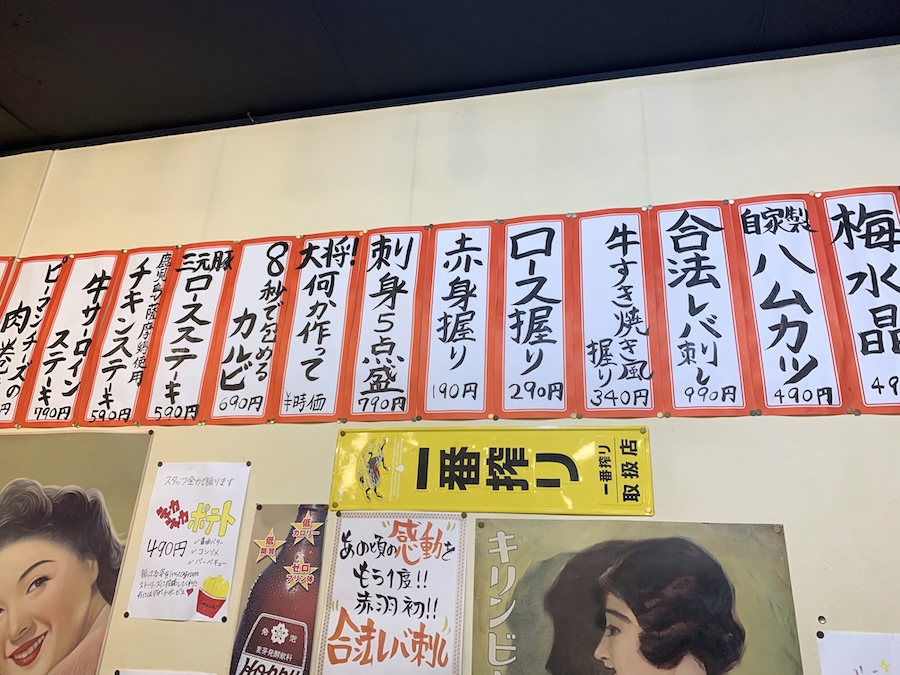 梅水晶
49
自家製
ハムカツ
490円
合法レバ刺し
990円
牛すき焼き風
握り
340円
ロース握り
290円
赤身握り
190円
刺身5点盛
790円
大将!
何か作って
¥時価
8秒で包める
カルビ
690円
三元豚
ロースステーキ
590円
鹿児島薩摩鶏使用
チキンステーキ
590円
牛サーロイン
ステーキ
790円
ピーマンチーズの
肉巻き
円
一番搾り
一番搾り
取扱店
スタッフ全力で振ります
ポテト
490円
✓醤油バター
✓コンソメ
✓バーベキュー
低カロリー
低糖質
ゼロプリン体
発泡
麦芽発酵飲料
あの頃の感動を
もう1度!!
赤羽初!!
"合法レバ刺し"
キリンビ